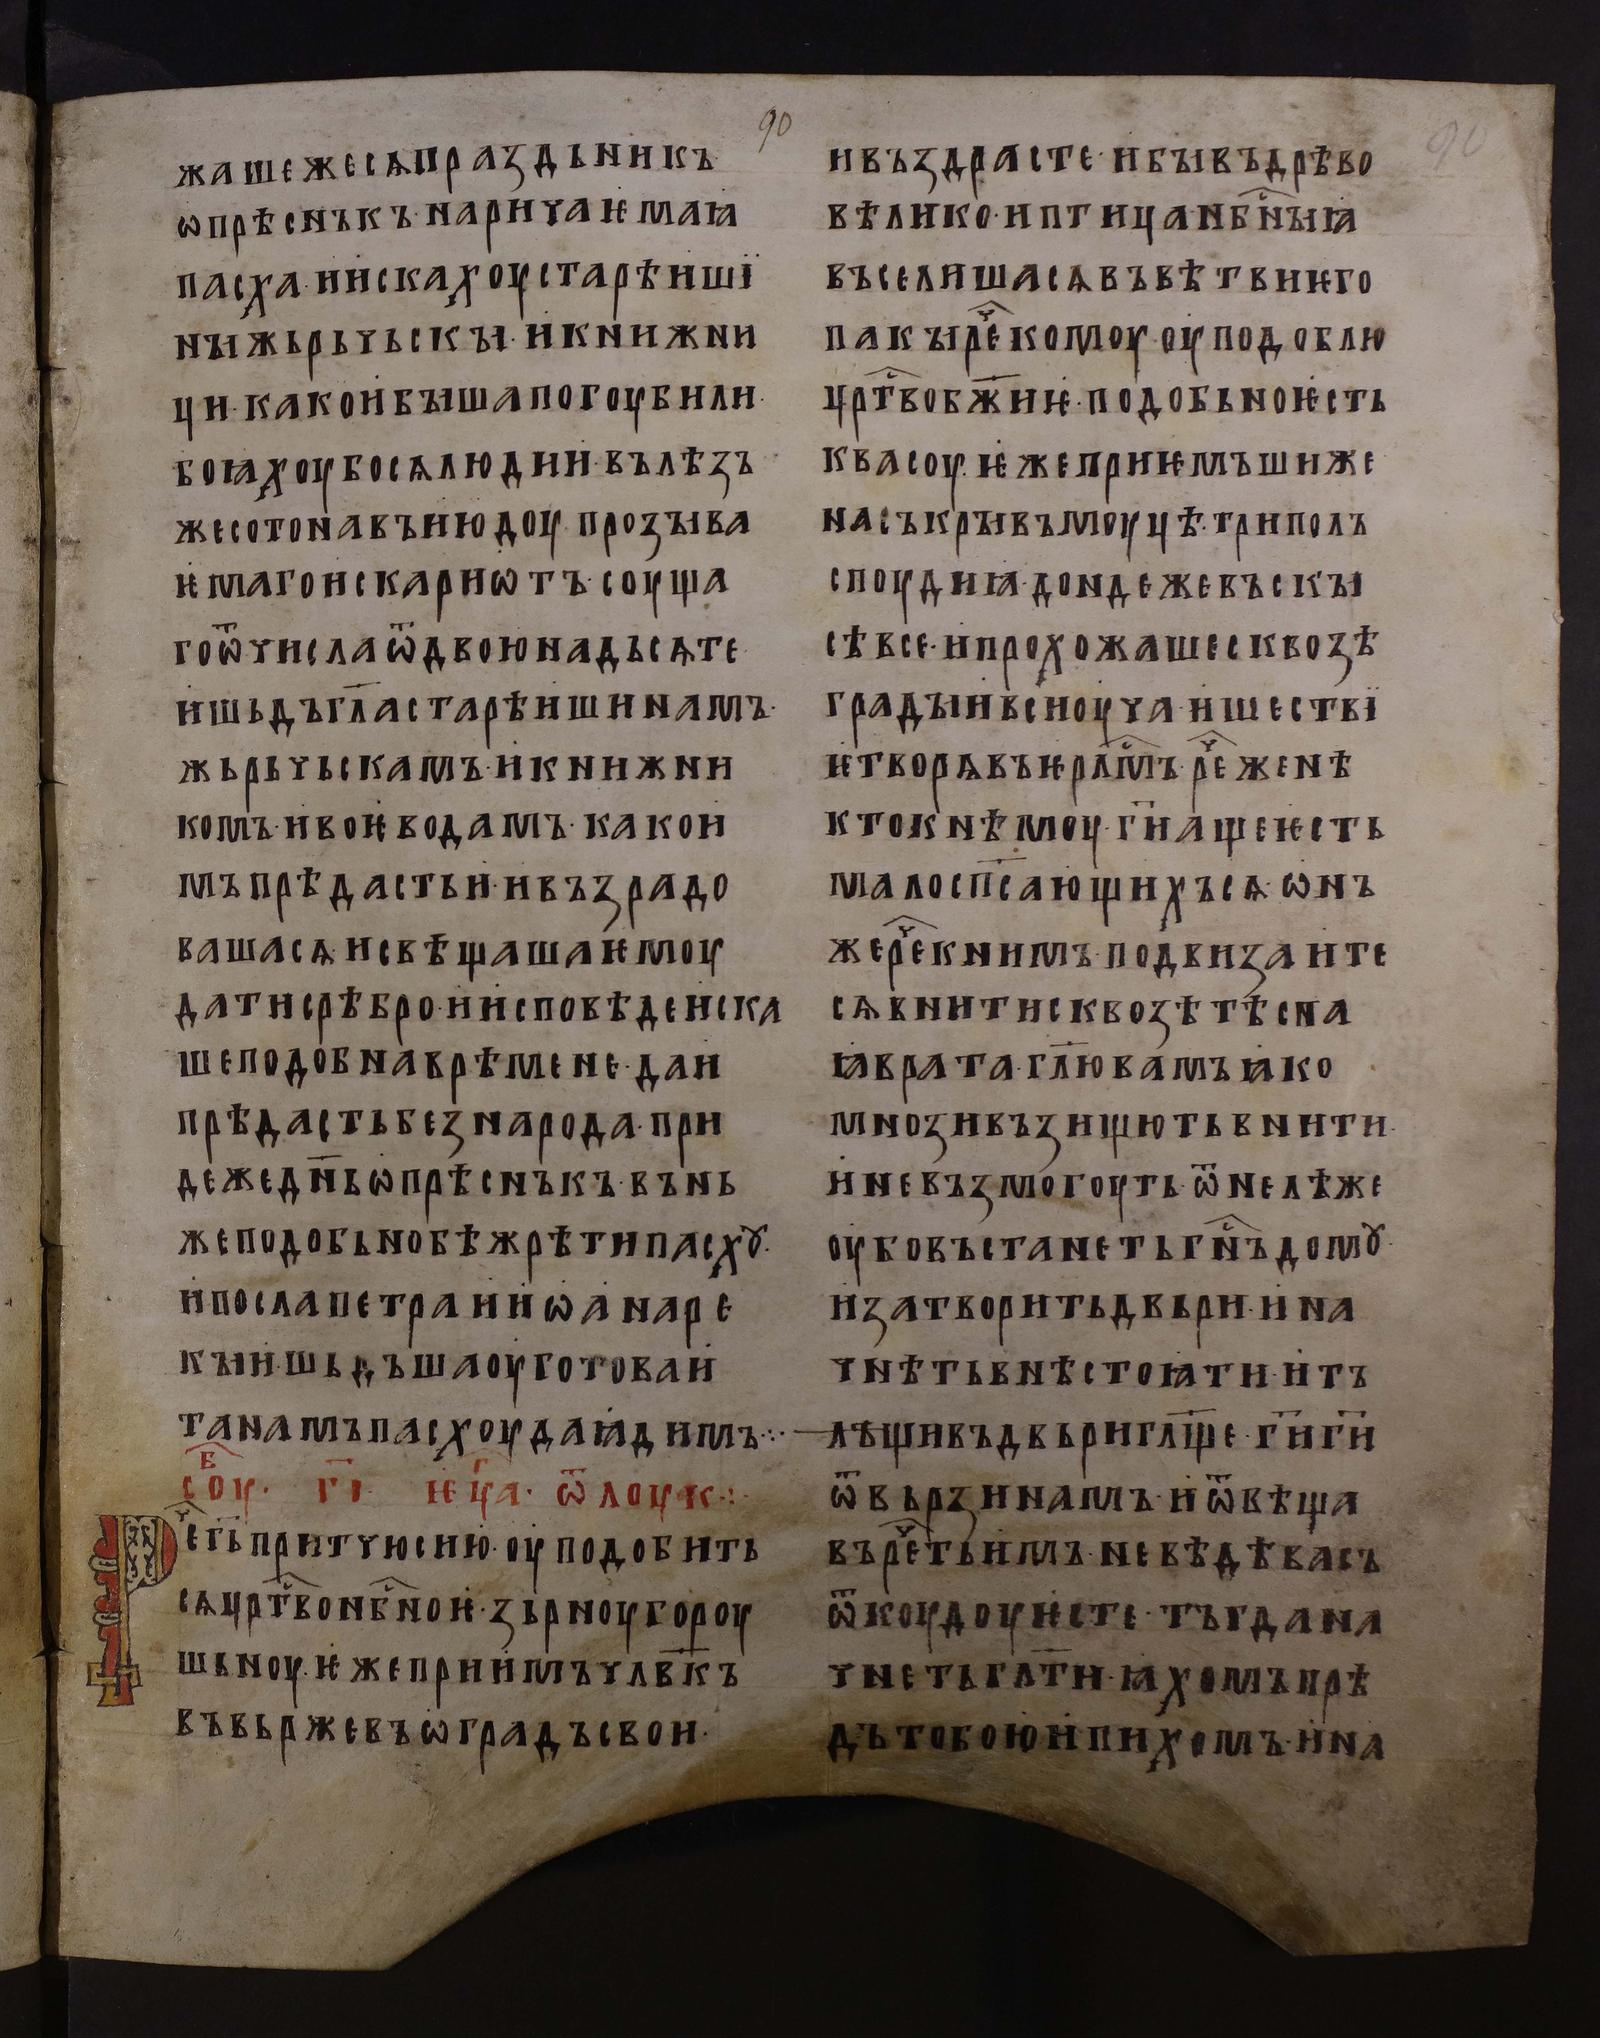 90
жашежесѧпраздьникъ
ѡпрѣснъкъ·наричаѥмаꙗ
пасха·иискахоустарѣишї
нꙑжьрьчьскꙑ·икнижни
ци·какоибꙑшапогоубили·
боꙗхоубосѧлюдии·вълѣзъ
жесотонавъиюдоу·прозꙑва
ѥмагоискариѡтъ·соуща
гоѿчислаѿдвоюнадьсѧте
ишьдъгл҃астарѣишинамъ·
жьрьчьскамъ·икнижни
комъ·ивоѥводамъ·какои
мъпрѣдастьи·ивъзрадо
вашасѧисвѣщашаѥмоу
датисрѣбро·иисповѣдеиска
шеподобнаврѣмене·даи
прѣдастьбезнарода·при
дежедн҃ьѡпрѣснъкъ·вънь
жеподобьнобѣжрѣтипасхꙋ·
ипослапетраииѡанаре
кꙑи·шьдъшаоуготоваи
танамъпасхоудаꙗдимъ·:·
сеоу· г҃і· ѥуаг҃· ѿлоук·:·
Речег҃ьпритчюсию·оуподобить
сѧцрт҃вонб҃ноѥ·зьрноугороу
шьноу·ѥжеприимъчлв҃къ
въвьржевъѡградъсвои·
90
ивъздрасте·ибꙑвъдрѣво
вѣлико·иптицанб҃нꙑꙗ
въселишасѧвъвѣтвиѥго
пакꙑречекомоу·оуподоблю
црт҃вобж҃иѥ·подобьноѥсть
квасоу·ѥжеприѥмъшиже
насъкрꙑвъмоуцѣ·триполъ
споудиꙗ·дондежевъскꙑ
сѣвсе·ипрохожашесквозѣ
градꙑивсиоуча·ишествї
ѥтворѧвъѥрл҃мъ·речеженѣ
ктокнѣмоу·г҃иащеѥсть
малосп҃сающихъсѧ·ѡнъ
жерече книмъ·подвизаите
сѧвнитисквозѣтѣсна
ꙗврата·гл҃ювамъꙗко
мнозивъзищютьвнити·
иневъзмогоуть·ѿнелѣже
оубовъстанетьгн҃ъдомꙋ·
изатворитьдвьри·ина
чнѣтьвнѣстоꙗти·итъ
лѣщивъдвьригл҃ще·г҃иг҃и
ѿвьрзинамъ·иѿвѣща
въречетьимъ·невѣдѣвасъ
ѿкоудоуѥсте·тъгдана
чнетьгл҃ти·ꙗхомъпрѣ
дътобоюипихомъ·ина